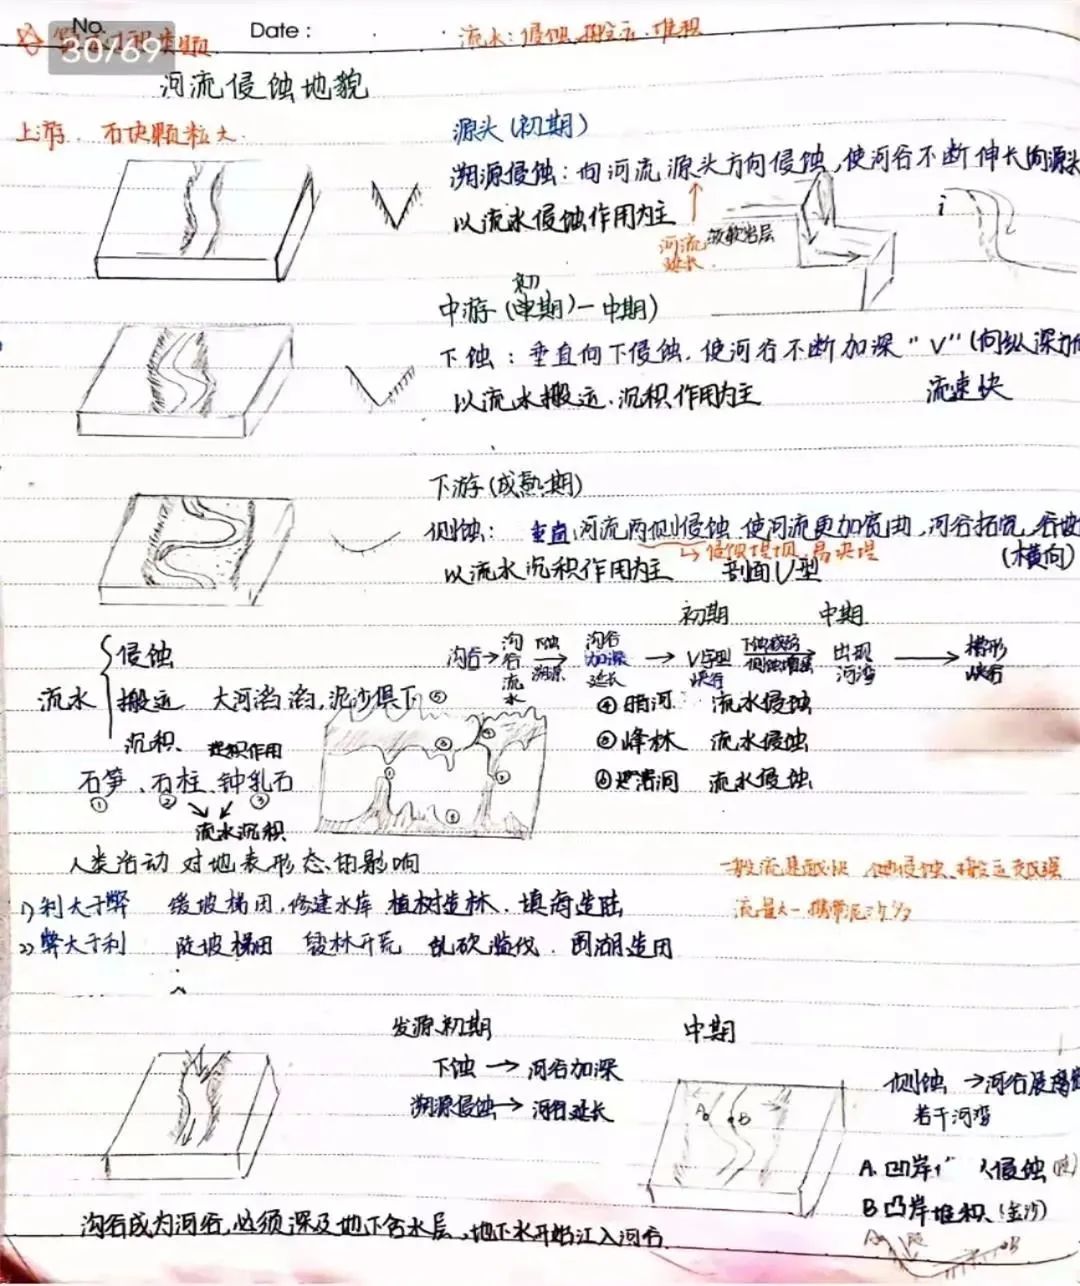 No.
Date :
流水：侵蚀、搬运、堆积
30/69
河流侵蚀地貌
上游、石块颗粒大
源头（初期）
溯源侵蚀：向河流源头方向侵蚀，使河谷不断伸长向源头
以流水侵蚀作用为主
河流延长
软岩层
初
中游（中期）一中期）
下蚀：垂直向下侵蚀，使河谷不断加深"V"（向纵深方向
以流水搬运、沉积作用为主
流速快
下游（成熟期）
侧蚀：垂直河流两侧侵蚀 使河流更加弯曲，河谷拓宽，谷坡
侵蚀堤坝，易决堤
（横向）
以流水沉积作用为主 剖面U型
初期 中期
沟谷→沟谷流水
下蚀
溯源
沟谷加深延长
→V字型峡谷
下蚀减弱
侧蚀增强
出现河湾
→槽形峡谷
流水
侵蚀
搬运 大河滔滔，泥沙俱下
沉积
④暗河 流水侵蚀
⑤峰林 流水侵蚀
⑥溶洞 流水侵蚀
石笋、石柱、钟乳石
① ② ③
流水沉积
人类活动对地表形态的影响
1）利大于弊 缓坡梯田，修建水库 植树造林、填海造陆
2）弊大于利 陡坡梯田 毁林开荒 乱砍滥伐、围湖造田
一般流速越快，侧侵蚀、搬运越强
流量大一携带泥沙多
发源、初期
下蚀→河谷加深
溯源侵蚀→河谷延长
中期
侧蚀→河谷展宽
若干河湾
A B
A. 凹岸 侵蚀
B 凸岸堆积（金沙）
沟谷成为河谷，必须深及地下含水层，地下水开始汇入河谷